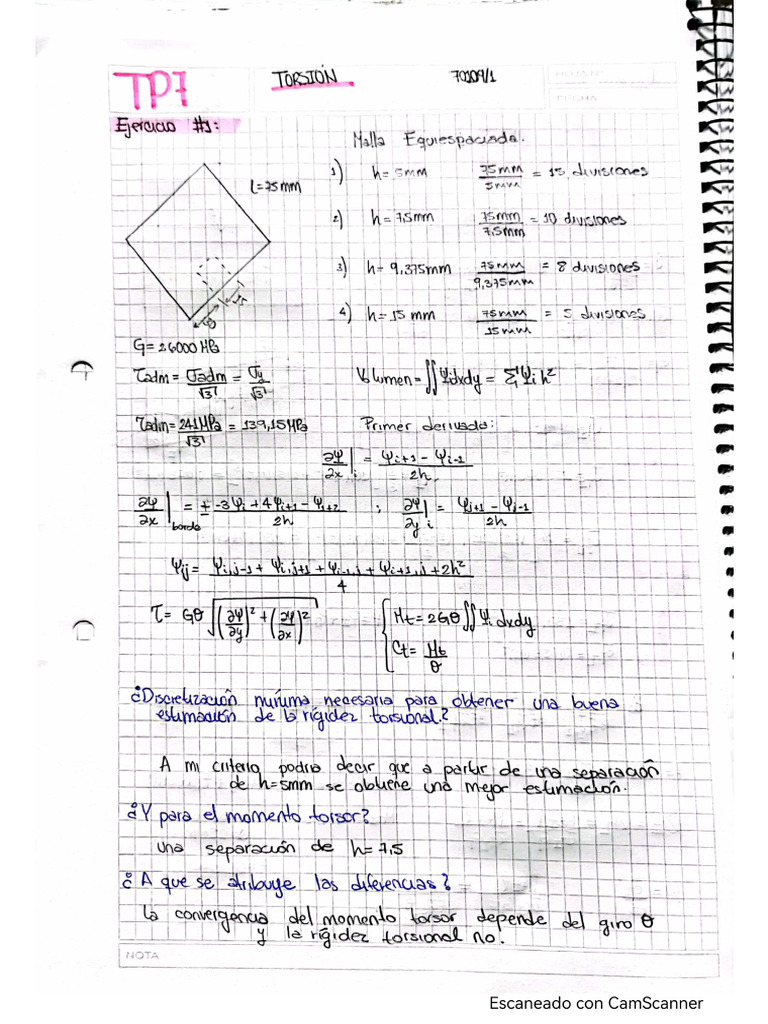 TP7
TORSIÓN
70109/1
HOJA N°
FECHA
Ejercicio #1:
Malla Equiespaciada.
l=75mm
1) h=5mm 75mm/5mm = 15 divisiones
2) h=7,5mm 75mm/7,5mm = 10 divisiones
3) h=9,375mm 75mm/9,375mm = 8 divisiones
4) h=15mm 75mm/15mm = 5 divisiones
G=26000 MPa
τadm = σadm/√3 = σy/√3
Volumen = ∬ψdxdy = Σψi h²
τadm = 241MPa/√3 = 139,15MPa
Primer derivada:
∂ψ/∂x|i = (ψi+1 − ψi−1)/2h
∂ψ/∂x|borde = ± (−3ψi + 4ψi+1 − ψi+2)/2h ; ∂ψ/∂y|i = (ψj+1 − ψj−1)/2h
ψij = (ψi,j−1 + ψi,j+1 + ψi−1,j + ψi+1,j + 2h²)/4
τ = Gθ √((∂ψ/∂y)² + (∂ψ/∂x)²)
Mt = 2Gθ∬ψ dxdy
Ct = Mt/θ
¿Discretización mínima necesaria para obtener una buena
estimación de la rigidez torsional?
A mi criterio, podría decir que a partir de una separación
de h=5mm se obtiene una mejor estimación.
¿Y para el momento torsor?
una separación de h=7,5
¿A que se atribuye las diferencias?
la convergencia del momento torsor depende del giro θ
y la rigidez torsional no.
NOTA
Escaneado con CamScanner